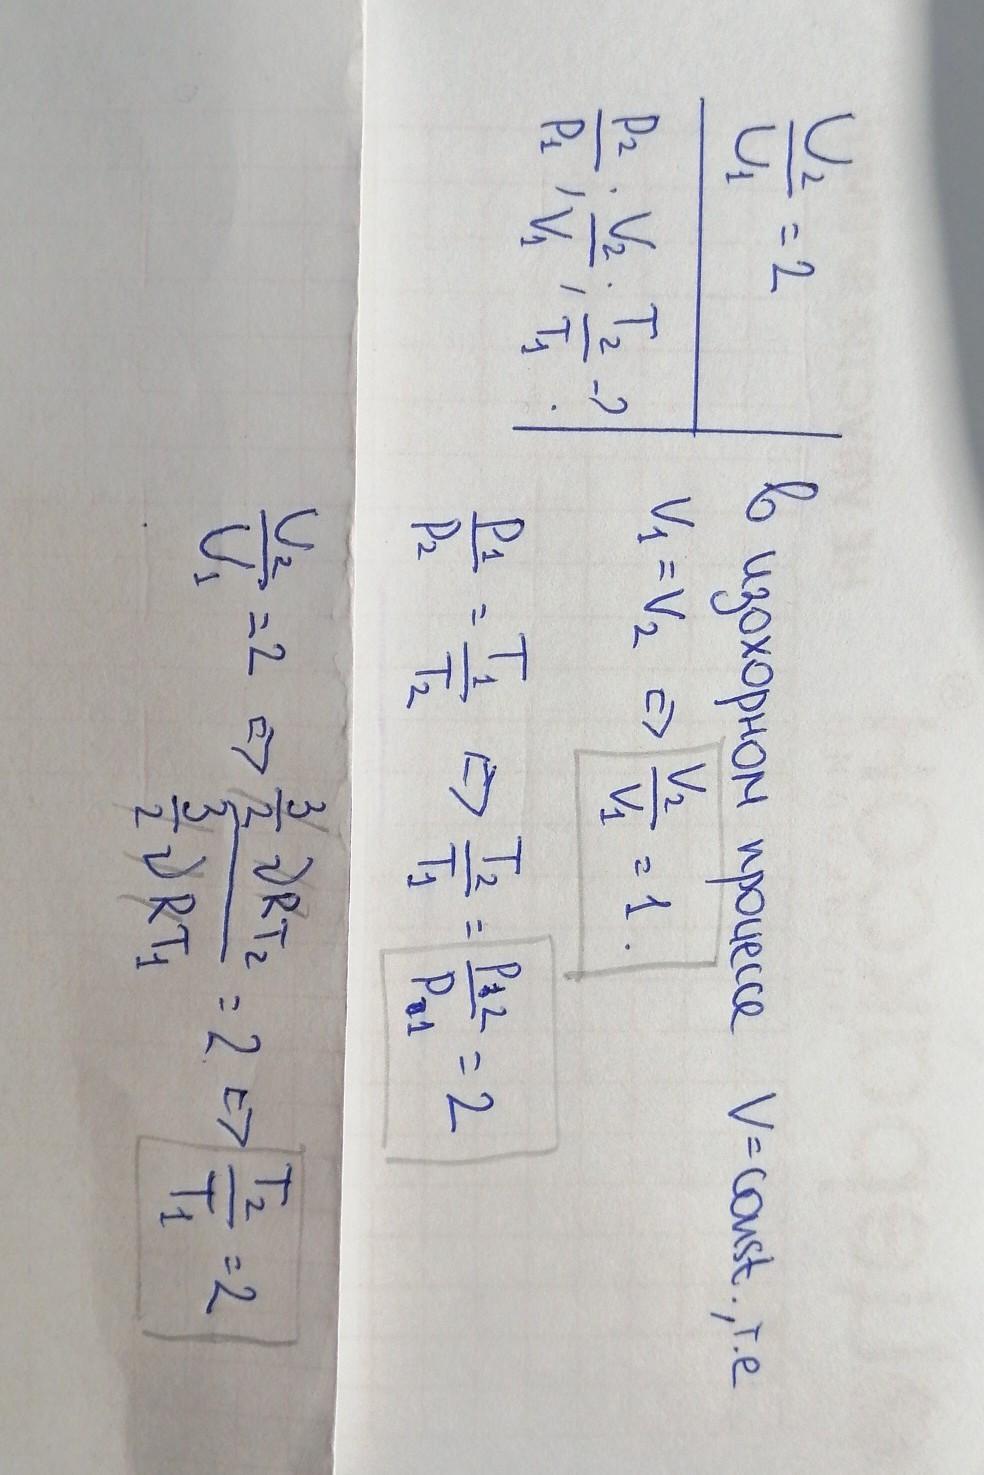 U₂/U₁ = 2
p₂/p₁, V₂/V₁, T₂/T₁ - ?
в изохорном процессе V = const., т.е
V₁ = V₂ ⇒ V₂/V₁ = 1.
p₁/p₂ = T₁/T₂ ⇒ T₂/T₁ = p₂/p₁ = 2
U₂/U₁ = 2 ⇒ (3/2 νRT₂)/(3/2 νRT₁) = 2 ⇒ T₂/T₁ = 2